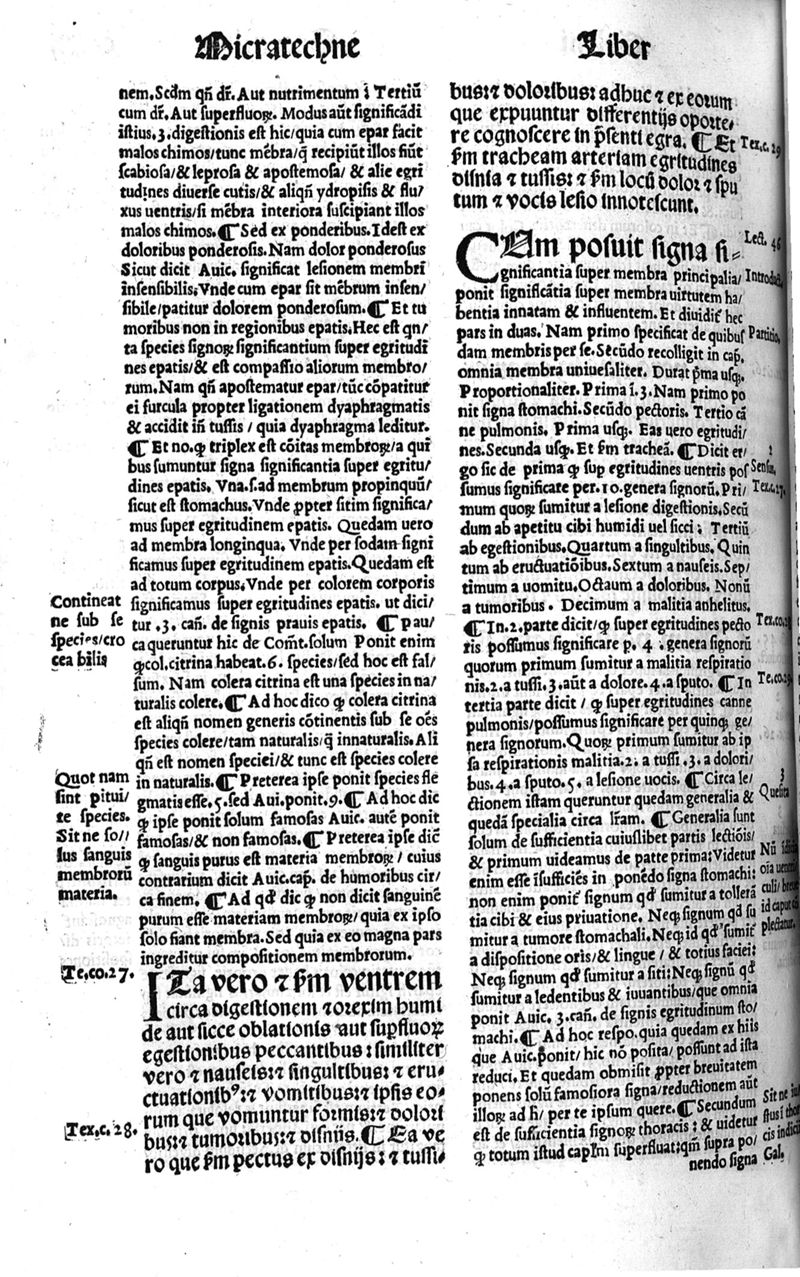 Micratechne
Liber
nem. Scđm qñ dr̄. Aut nutrimentum ī Tertiū
cum dr̄. Aut superfluoꝝ. Modus aūt significādi
istius .3. digestionis est hic/quia cum epar facit
malos chimos/tunc mēbra/q̄ recipiūt illos fiūt
scabiosa/& leprosa & apostemosa/ & alie egri
tudines diuerse cutis/& aliqñ ydropisis & flu/
xus uentris/si mēbra interiora suscipiant illos
malos chimos. ¶ Sed ex ponderibus. Idest ex
doloribus ponderosis. Nam dolor ponderosus
Sicut dicit Auic. significat lesionem membri
insensibilis; Vnde cum epar sit mēbrum insen/
sibile/patitur dolorem ponderosum. ¶ Et tu
moribus non in regionibus epatis. Hec est qn/
ta species signoꝝ significantium super egritudi
nes epatis/& est compassio aliorum membro/
rum. Nam qñ apostematur epar/tūc cōpatitur
ei furcula propter ligationem dyaphragmatis
& accidit iñ tussis / quia dyaphragma leditur.
¶ Et no. ꝙ triplex est cōitas membroꝝ/a qui
bus sumuntur signa significantia super egritu/
dines epatis. Vna .s. ad membrum propinquū/
sicut est stomachus. Vnde ꝓpter sitim significa/
mus super egritudinem epatis. Quedam uero
ad membra longinqua. Vnde per sodam signi
ficamus super egritudinem epatis. Quedam est
ad totum corpus; Vnde per colorem corporis
significamus super egritudines epatis. ut dici/
tur .3. cañ. de signis prauis epatis. ¶ Pau/
ca queruntur hic de Com̄t. solum Ponit enim
ꝙ col. citrina habeat .6. species/sed hoc est fal/
sum. Nam colera citrina est una species in na/
turalis colere. ¶ Ad hoc dico ꝙ colera citrina
est aliqñ nomen generis cōtinentis sub se oēs
species colere/tam naturalis/q̄ innaturalis. Ali
qñ est nomen speciei/& tunc est species colere
in naturalis. ¶ Preterea ipse ponit species fle
gmatis esse .5. sed Aui. ponit .9. ¶ Ad hoc dic
ꝙ ipse ponit solum famosas Auic. autē ponit
famosas/& non famosas. ¶ Preterea ipse dic̄
ꝙ sanguis purus est materia membroꝝ / cuius
contrarium dicit Auic. cap. de humoribus cir/
ca finem. ¶ Ad qđ dic ꝙ non dicit sanguinē
purum esse materiam membroꝝ/ quia ex ipso
solo fiant membra. Sed quia ex eo magna pars
ingreditur compositionem membrorum.
Contineat
ne sub se
species/cro
cea bilis
Quot nam
sint pitui/
te species.
Sit ne so//
lus sanguis
membrorū
materia.
Te.co.27.
ITa vero ⁊ fm ventrem
circa digestionem ⁊ orexim humi
de aut sicce oblationis aut supfluoꝝ
egestionibus peccantibus: similiter
vero ⁊ nauseis: ⁊ singultibus: ⁊ eru⸗
ctuationib⁹: ⁊ vomitibus: ⁊ ipsis eo⸗
rum que vomuntur formis: ⁊ dolori
bus: ⁊ tumoribus: ⁊ disnijs. ¶ Ea ve
ro que fm pectus ex disnijs: ⁊ tussi⸗
Tex.c.28.
bus: ⁊ doloribus: adhuc ⁊ ex eorum
que expuuntur differentijs oporte⸗
re cognoscere in p̄senti egra. ¶ Et
fm tracheam arteriam egritudines
disnia ⁊ tussis: ⁊ fm locū dolor ⁊ spu
tum ⁊ vocis lesio innotescunt.
Tex.c.29
CUm posuit signa si⸗
gnificantia super membra principalia/
ponit significātia super membra uirtutem ha/
bentia innatam & influentem. Et diuidit̄ hec
pars in duas. Nam primo specificat de quibus
dam membris per se. Secūdo recolligit in cap.
omnia membra uniuersaliter. Durat p̄ma usq;
Proportionaliter. Prima ī .3. Nam primo po
nit signa stomachi. Secūdo pectoris. Tertio cā
ne pulmonis. Prima usq; Eas uero egritudi/
nes. Secunda usq; Et fm tracheā. ¶ Dicit er/
go sic de prima ꝙ sup egritudines uentris pos
sumus significare per .10. genera signorū. Pri/
mum quoꝝ sumitur a lesione digestionis. Secū
dum ab apetitu cibi humidi uel sicci; Tertiū
ab egestionibus. Quartum a singultibus. Quin
tum ab eructuatiōibus. Sextum a nauseis. Sep/
timum a uomitu. Octaum a doloribus. Nonū
a tumoribus. Decimum a malitia anhelitus.
¶ In .2. parte dicit/ꝙ super egritudines pecto
ris possumus significare p. 4. genera signorū
quorum primum sumitur a malitia respiratio
nis .2. a tussi .3. aūt a dolore .4. a sputo. ¶ In
tertia parte dicit / ꝙ super egritudines canne
pulmonis/possumus significare per quinq; ge/
nera signorum. Quoꝝ primum sumitur ab ip
sa respirationis malitia .2. a tussi .3. a dolori/
bus .4. a sputo .5. a lesione uocis. ¶ Circa le/
ctionem istam queruntur quedam generalia &
quedā specialia circa lr̄am. ¶ Generalia sunt
solum de sufficientia cuiuslibet partis lectiōis/
& primum uideamus de patte prima: Videtur
enim esse īsufficiēs in ponēdo signa stomachi:
non enim ponit̄ signum qđ sumitur a tollerā
tia cibi & eius priuatione. Neq; signum qđ su
mitur a tumore stomachali. Neq; id qđ sumit̄
a dispositione oris/& lingue / & totius faciei:
Neq; signum qđ sumitur a siti: Neq; signū qđ
sumitur a ledentibus & iuuantibus/que omnia
ponit Auic. 3. cañ. de signis egritudinum sto/
machi. ¶ Ad hoc respo. quia quedam ex hiis
que Auic. ponit/ hic nō posita/ possunt ad ista
reduci. Et quedam obmisit ꝓpter breuitatem
ponens solū famosiora signa/reductionem aūt
illoꝝ ad h/ per te ipsum quere. ¶ Secundum
est de sufficientia signoꝝ thoracis: & uidetur
ꝙ totum istud caplm superfluat: qm̄ supra po/
nendo signa
Lect. 46
Introduct.
Partitio.
Sensus.
Tex.c.27.
Tex.co.28
Te.co.29.
3
Quesita
oia
culi/breui
id caput cō
plectatur.
Sit ne
cis indici
Gal.